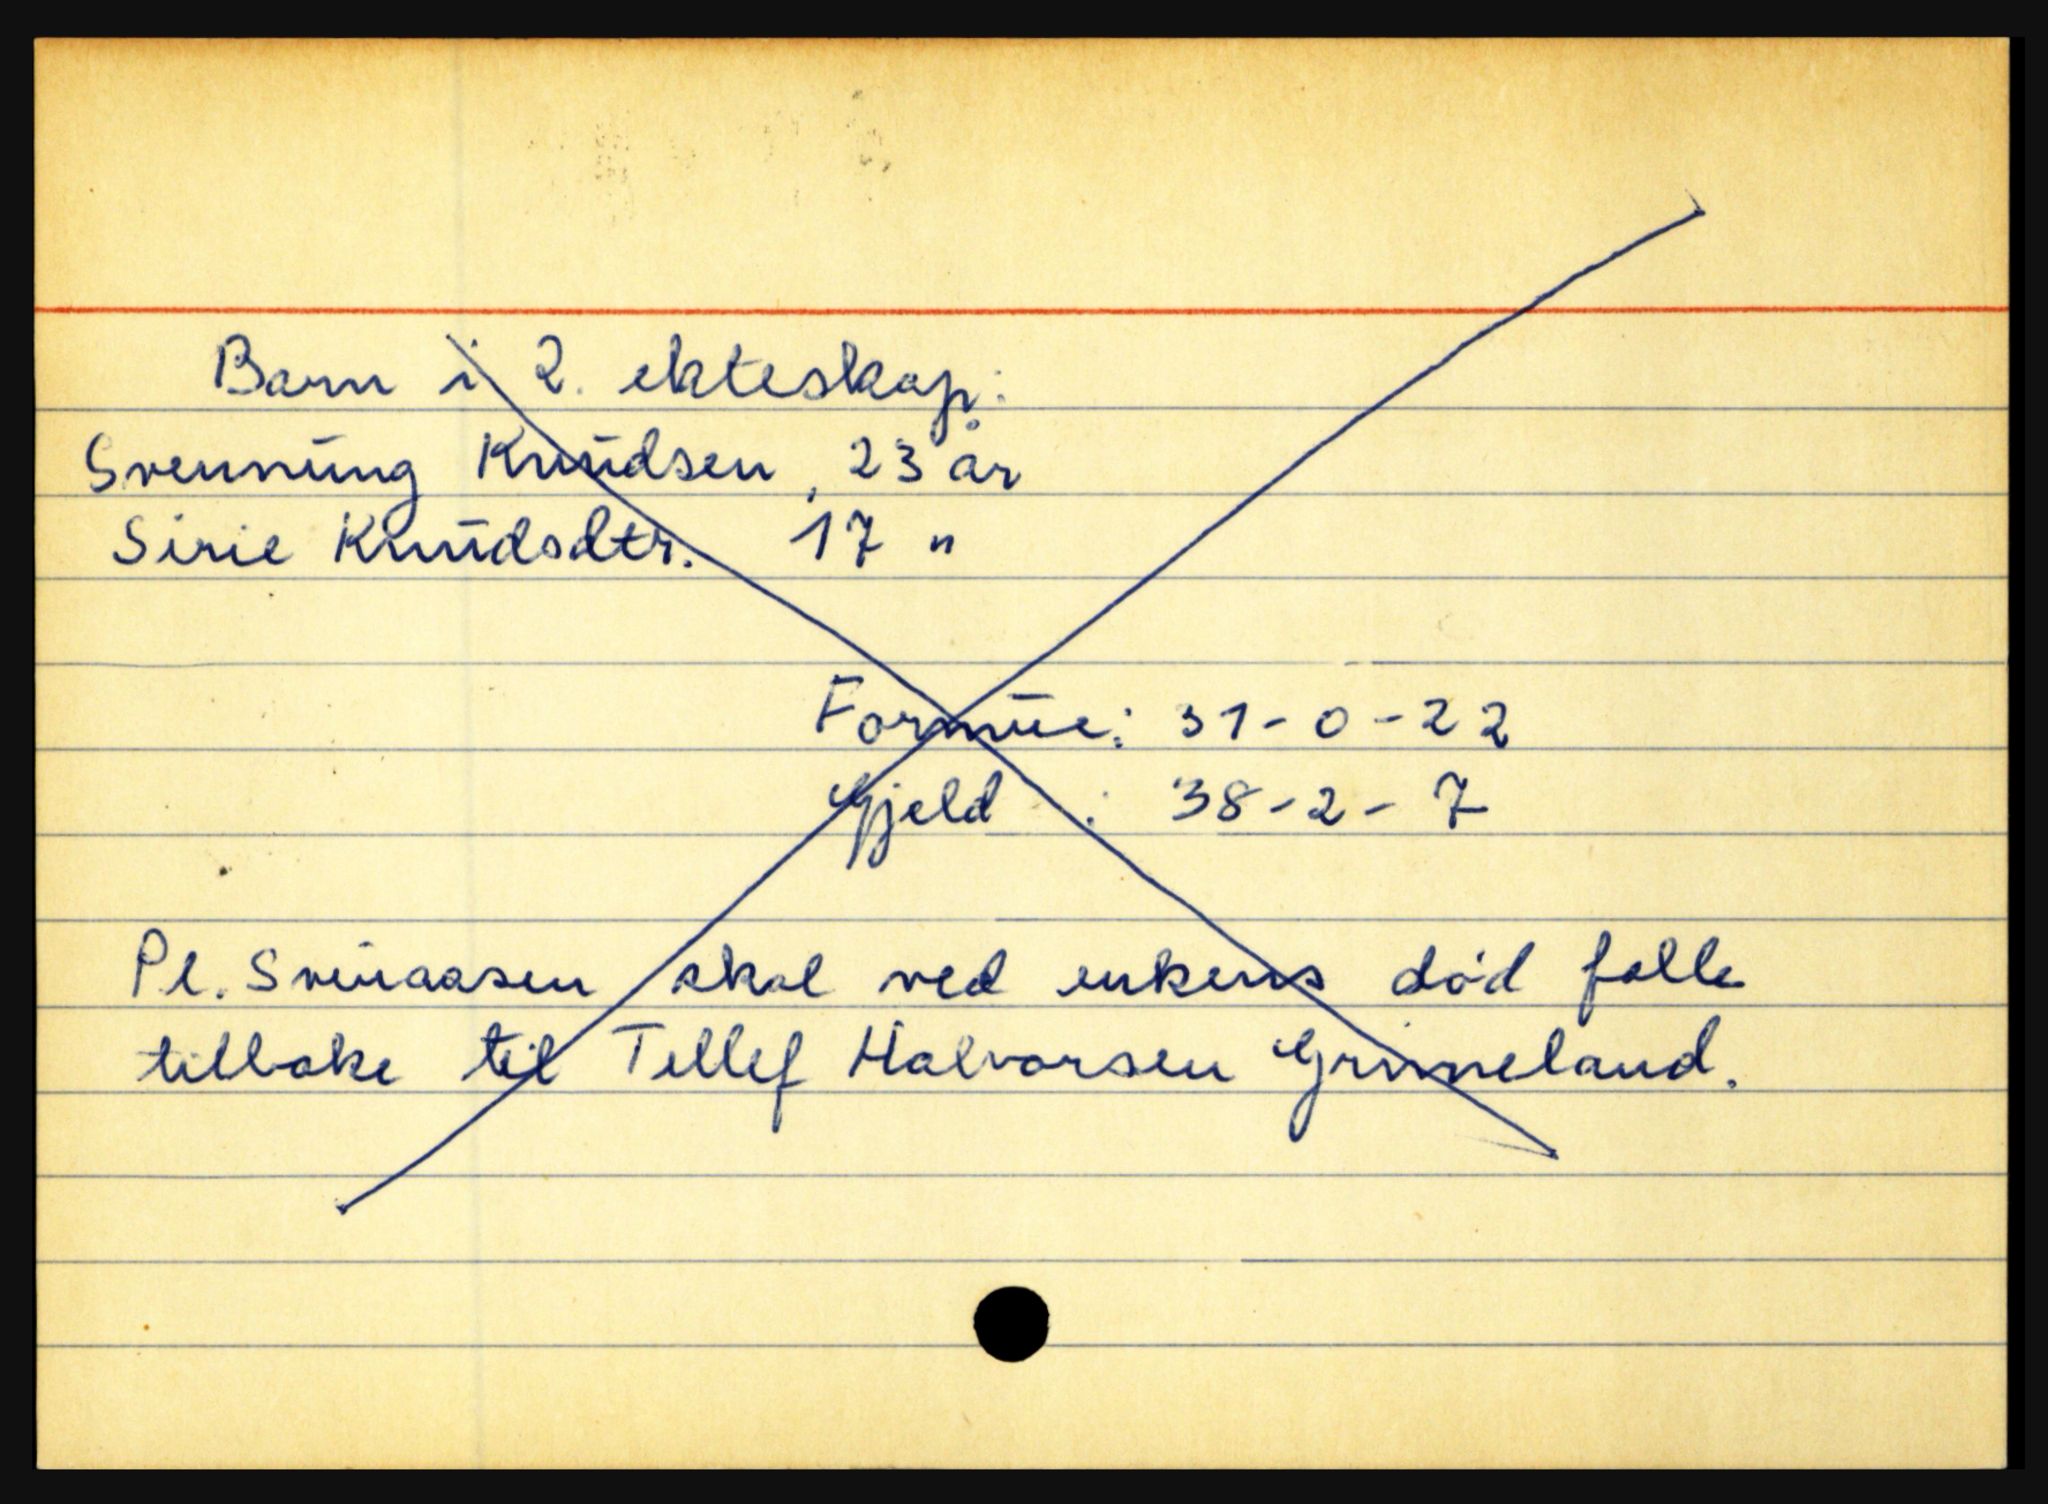 Barn i 2. ekteskap:
Svennung Knudsen, 23 år
Sirie Knudsdtr. 17 "
Formue: 31-0-22
Gjeld : 38-2-7
Pl. skal ved enkens død falle
tilbake til Tellef Halvorsen